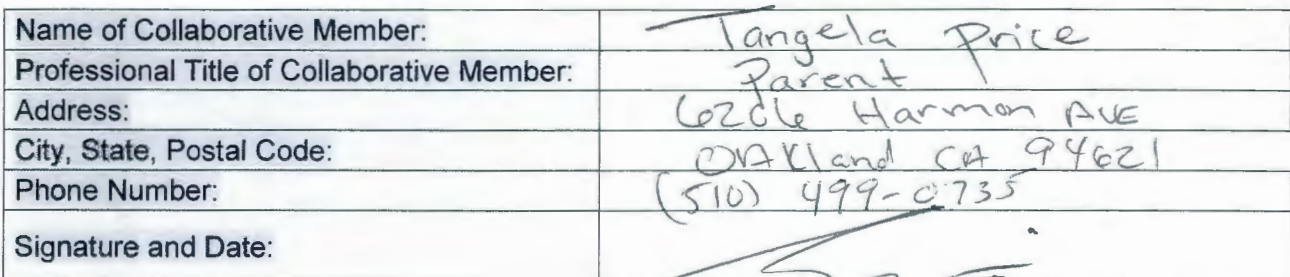 Name of Collaborative Member: Tangela Price
Professional Title of Collaborative Member: Parent
Address: 6206 Harmon AVE
City, State, Postal Code: OAKland CA 94621
Phone Number: (510) 499-0735
Signature and Date: